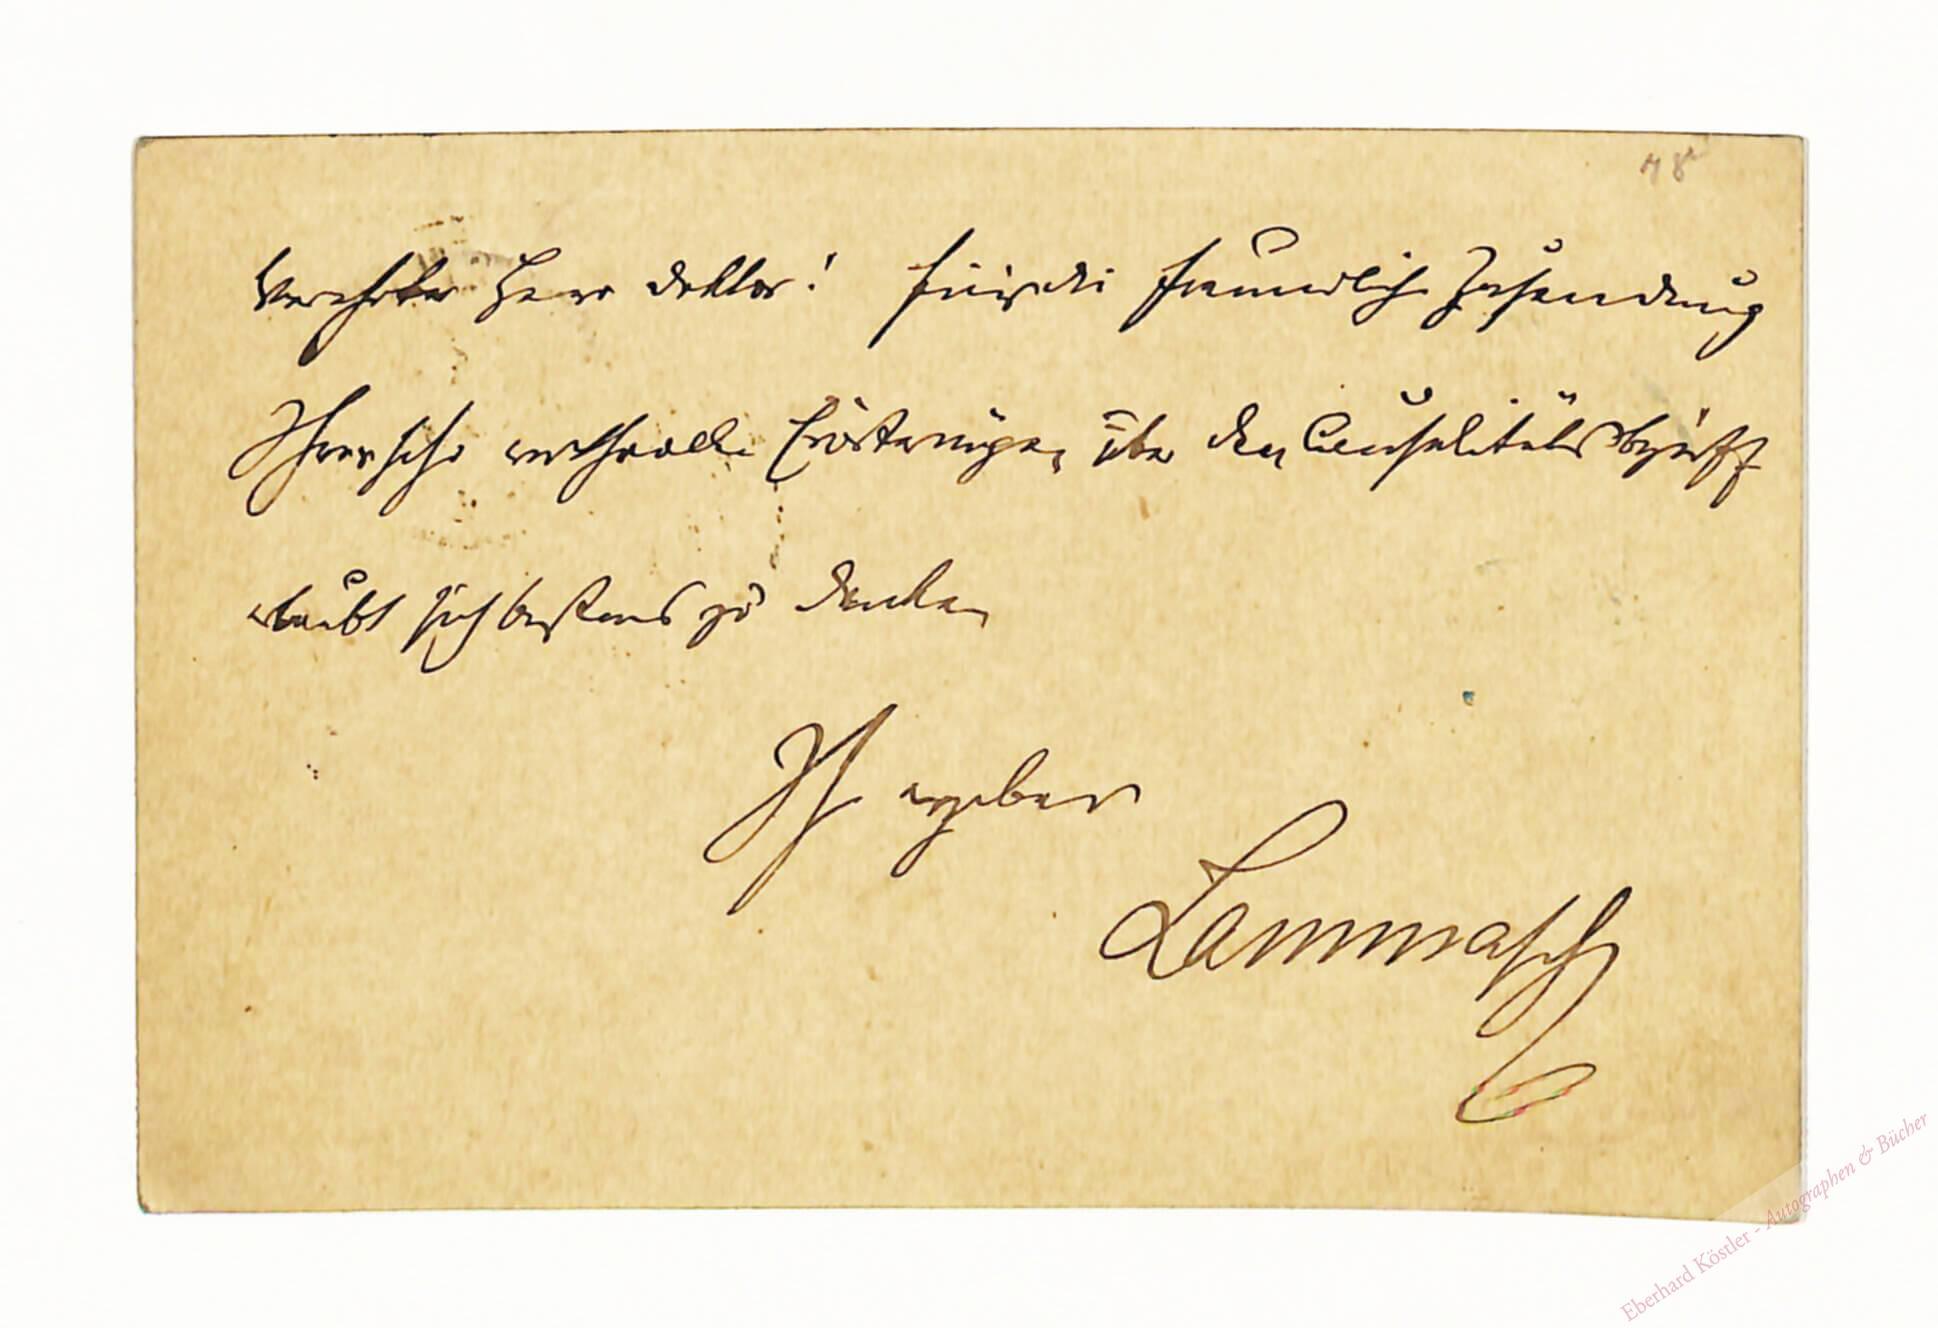 Verehrter Herr Doktor! Für die freundliche Zusendung
Ihrer sehr werthvollen Erörterungen über den Causalitätsbegriff
erlaubt sich bestens zu danken
Ihr ergebener
Lammasch
Eberhard Köstler - Autographen & Bücher